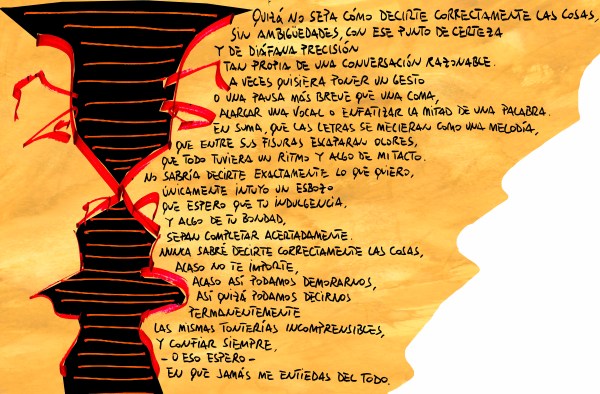 QUIZÁ NO SEPA CÓMO DECIRTE CORRECTAMENTE LAS COSAS,
SIN AMBIGÜEDADES, CON ESE PUNTO DE CERTEZA
Y DE DIÁFANA PRECISIÓN
TAN PROPIA DE UNA CONVERSACIÓN RAZONABLE.
A VECES QUISIERA PONER UN GESTO
O UNA PAUSA MÁS BREVE QUE UNA COMA,
ALARGAR UNA VOCAL O ENFATIZAR LA MITAD DE UNA PALABRA.
EN SUMA, QUE LAS LETRAS SE MECIERAN COMO UNA MELODÍA,
QUE ENTRE SUS FIGURAS ESCAPARAN OLORES,
QUE TODO TUVIERA UN RITMO Y ALGO DE MI TACTO.
NO SABRÍA DECIRTE EXACTAMENTE LO QUE QUIERO,
ÚNICAMENTE INTUYO UN ESBOZO
QUE ESPERO QUE TU INDULGENCIA,
Y ALGO DE TU BONDAD,
SEPAN COMPLETAR ACERTADAMENTE.
NUNCA SABRÉ DECIRTE CORRECTAMENTE LAS COSAS,
ACASO NO TE IMPORTE,
ACASO ASÍ PODAMOS DEMORARNOS,
ASÍ QUIZÁ PODAMOS DECIRNOS
PERMANENTEMENTE
LAS MISMAS TONTERÍAS INCOMPRENSIBLES,
Y CONFIAR SIEMPRE,
- O ESO ESPERO -
EN QUE JAMÁS ME ENTIEDAS DEL TODO.